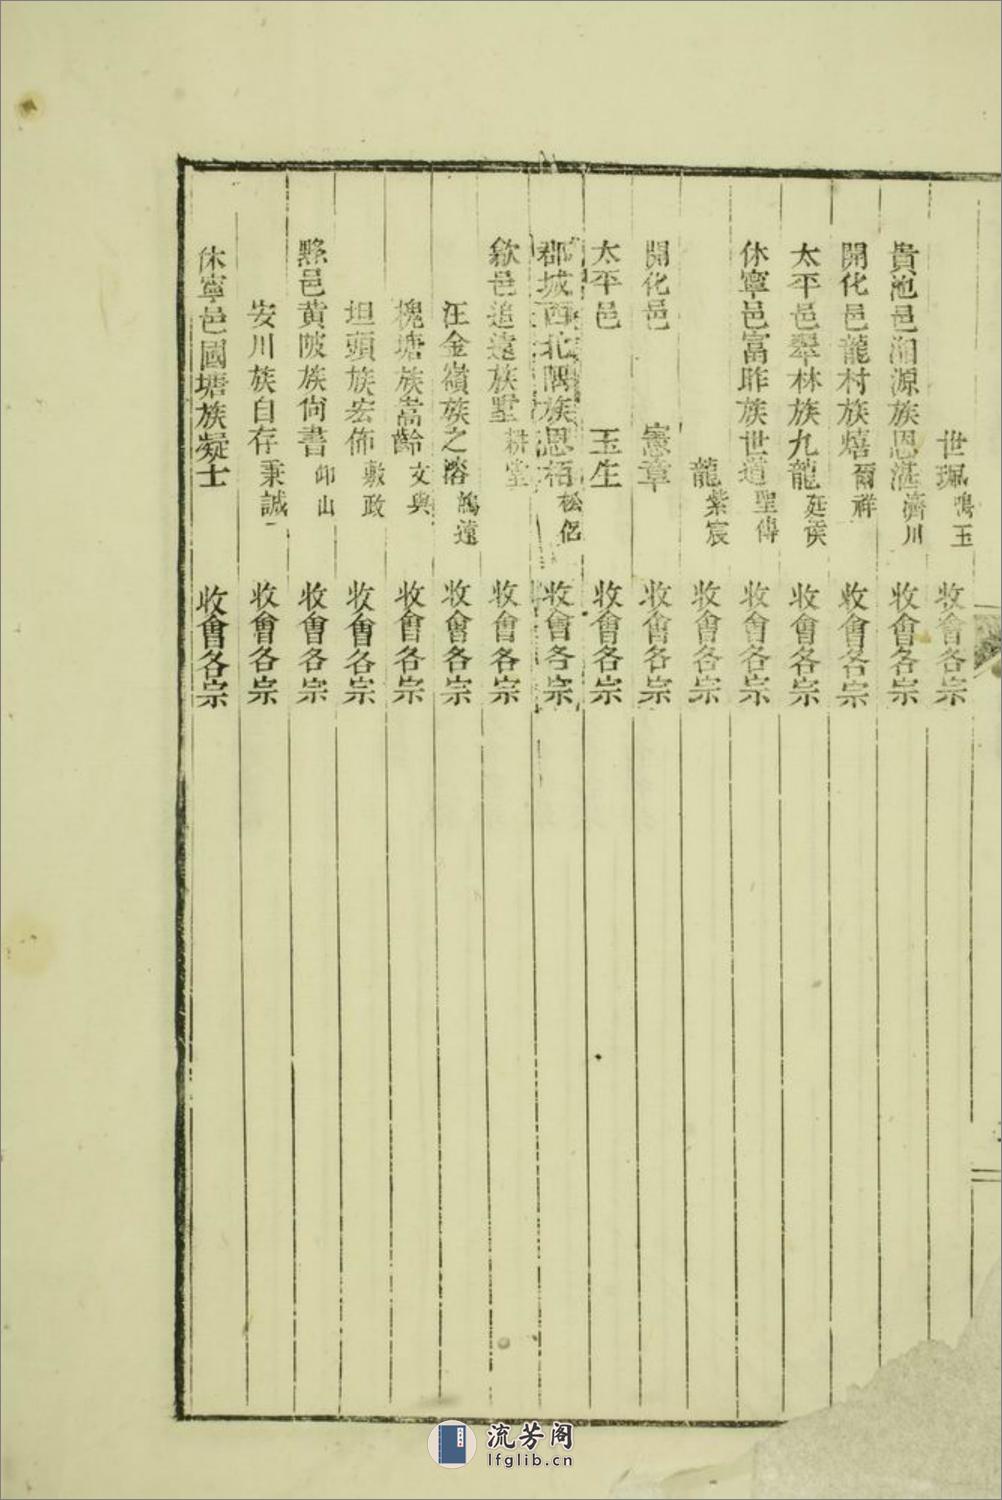 世珮鳴玉 收會各宗
貴池邑湘源族恩湛濟川 收會各宗
開化邑龍村族熺爾祥 收會各宗
太平邑翠林族九龍廷俟 收會各宗
休寧邑富昨族世道聖傳 收會各宗
龍紫宸 收會各宗
開化邑 憲章 收會各宗
太平邑 玉生 收會各宗
郡城西北隅族恩梧松侶 收會各宗
歙邑追遠族墅耕堂 收會各宗
汪金嶺族之溶鷁遠 收會各宗
槐塘族嵩齡文與 收會各宗
坦頭族宏佈敷政 收會各宗
黟邑黄陂族尙書仰山 收會各宗
安川族自存秉誠 收會各宗
休寧邑國塘族凝士 收會各宗
流芳阁
lfglib.cn